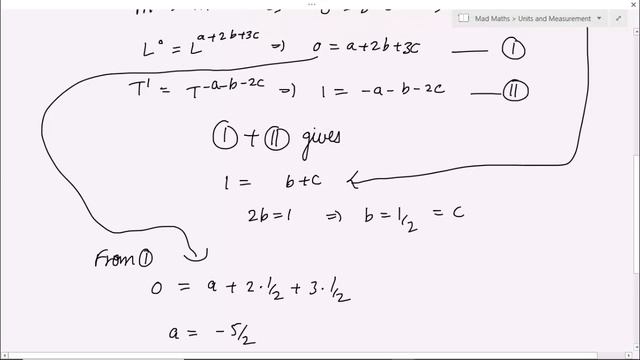 Mad Maths > Units and Measurement
L° = L^(a+2b+3c) ⇒ 0 = a+2b+3c — I
T¹ = T^(-a-b-2c) ⇒ 1 = -a-b-2c — II
I + II gives
1 = b+c
2b=1 ⇒ b = 1/2 = c
From I
0 = a + 2·1/2 + 3·1/2
a = -5/2